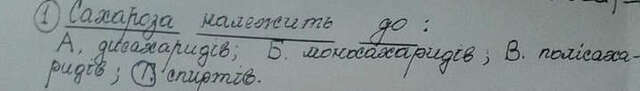 ① Сахароза належить до:
А. дисахаридів; Б. моносахаридів; В. полісаха-
ридів; Г спиртів.